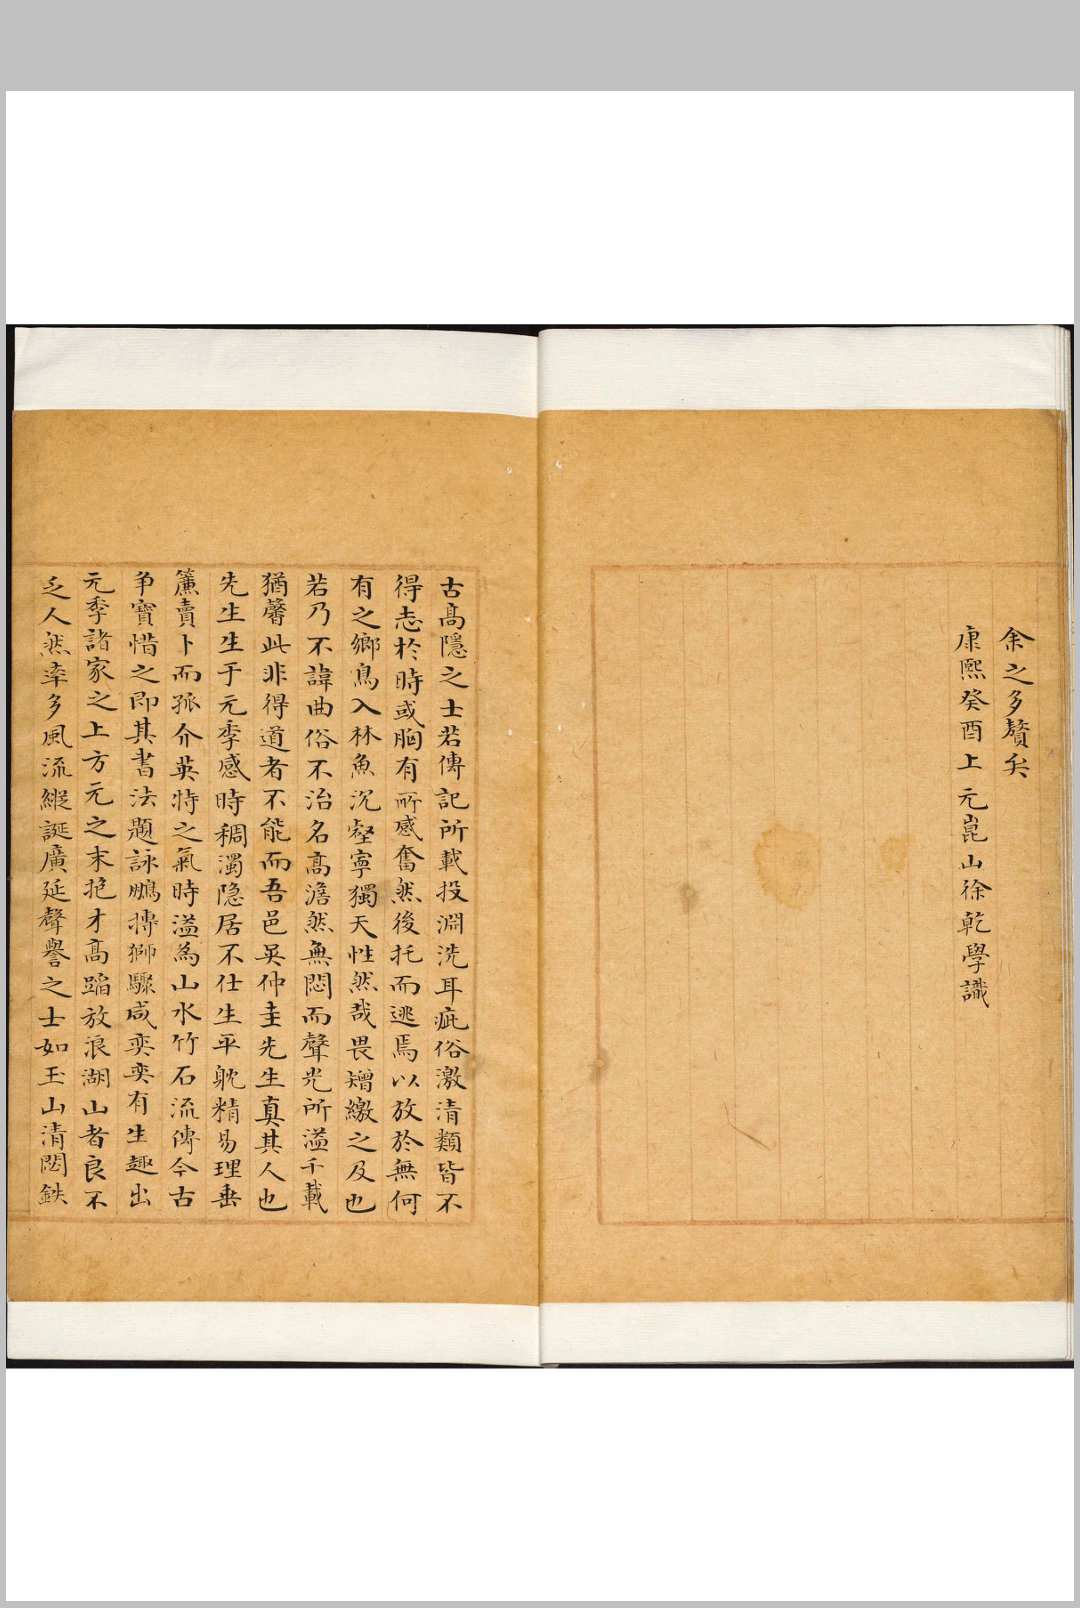 余之多贅矣
康熙癸酉上元崑山徐乾學識
古高隱之士若傳記所載投淵洗耳疵俗激清類皆不
得志於時或胸有所感奮然後托而逃焉以放於無何
有之鄉鳥入林魚沉壑寧獨天性然哉畏矰繳之及也
若乃不諱曲俗不治名高澹然無悶而聲光所溢千載
猶馨此非得道者不能而吾邑吴仲圭先生真其人也
先生生于元季感時稠濁隐居不仕生平躭精易理垂
簾賣卜而孤介英特之氣時溢為山水竹石流傳今古
争寶惜之即其書法題詠鵬摶獅驟咸奕奕有生趣出
元季諸家之上方元之末抱才高蹈放浪湖山者良不
乏人然率多風流縱誕廣延聲譽之士如玉山清閟鉄